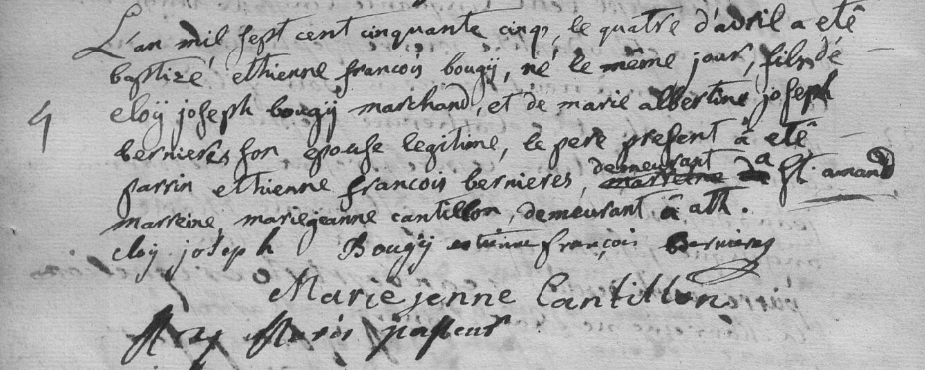 L'an mil sept cent cinquante cinq, le quatre d'avril a etê
baptizé ethienne françois bougÿ, né le même jour, fils dé
eloÿ joseph bougÿ marchand, et de marie albertine joseph
bernieres son epouse legitime, le pere present â etê
4
parrin ethienne françois bernieres, demeurant a St. amand
marreine mariejeanne cantillon, demeurant â ath.
eloy joseph Bougÿ etienne françois bernieres
Marie jenne Cantillon
pasteur